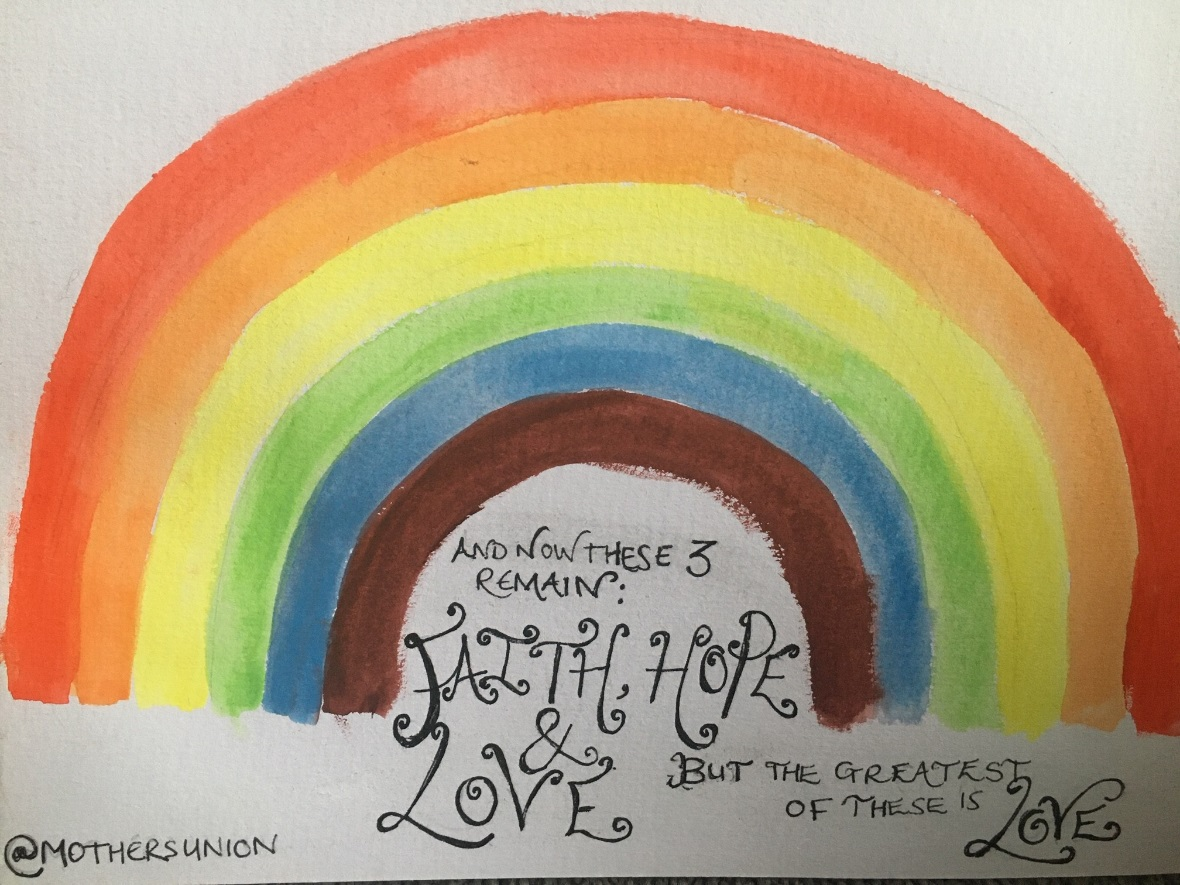 AND NOW THESE 3
REMAIN:
FAITH, HOPE
&
LOVE
BUT THE GREATEST
OF THESE IS LOVE
@MOTHERSUNION